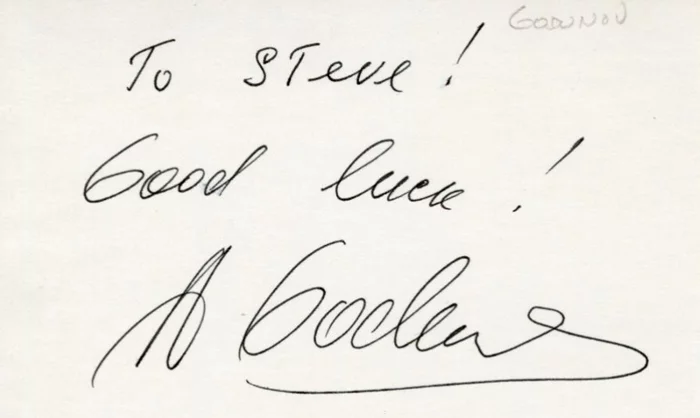 GODUNOV
To STeve!
Good luck!
A Godunov